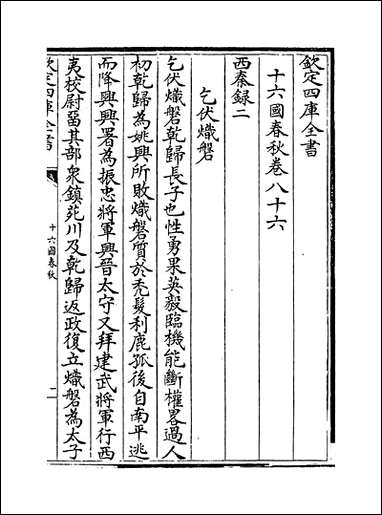 欽定四庫全書
十六國春秋卷八十六
西秦録二
乞伏熾磐
乞伏熾磐乾歸長子也性勇果英毅臨機能斷權畧過人
初乾歸為姚興所敗熾磐質於禿髮利鹿孤後自南平逃
而降興興署為振忠將軍興晉太守又拜建武將軍行西
夷校尉留其部衆鎮苑川及乾歸返政復立熾磐為太子
欽定四庫全書
十六國春秋